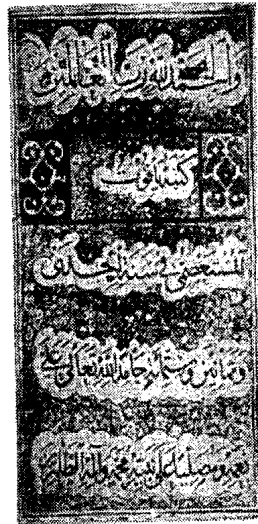 والحمد لله رب العالمين
كتبه ياقوت
المستعصمي في سنة احدى
وثمانين وستماية حامدا لله تعالى على
نعمه ومصليا على نبيه محمد وآله